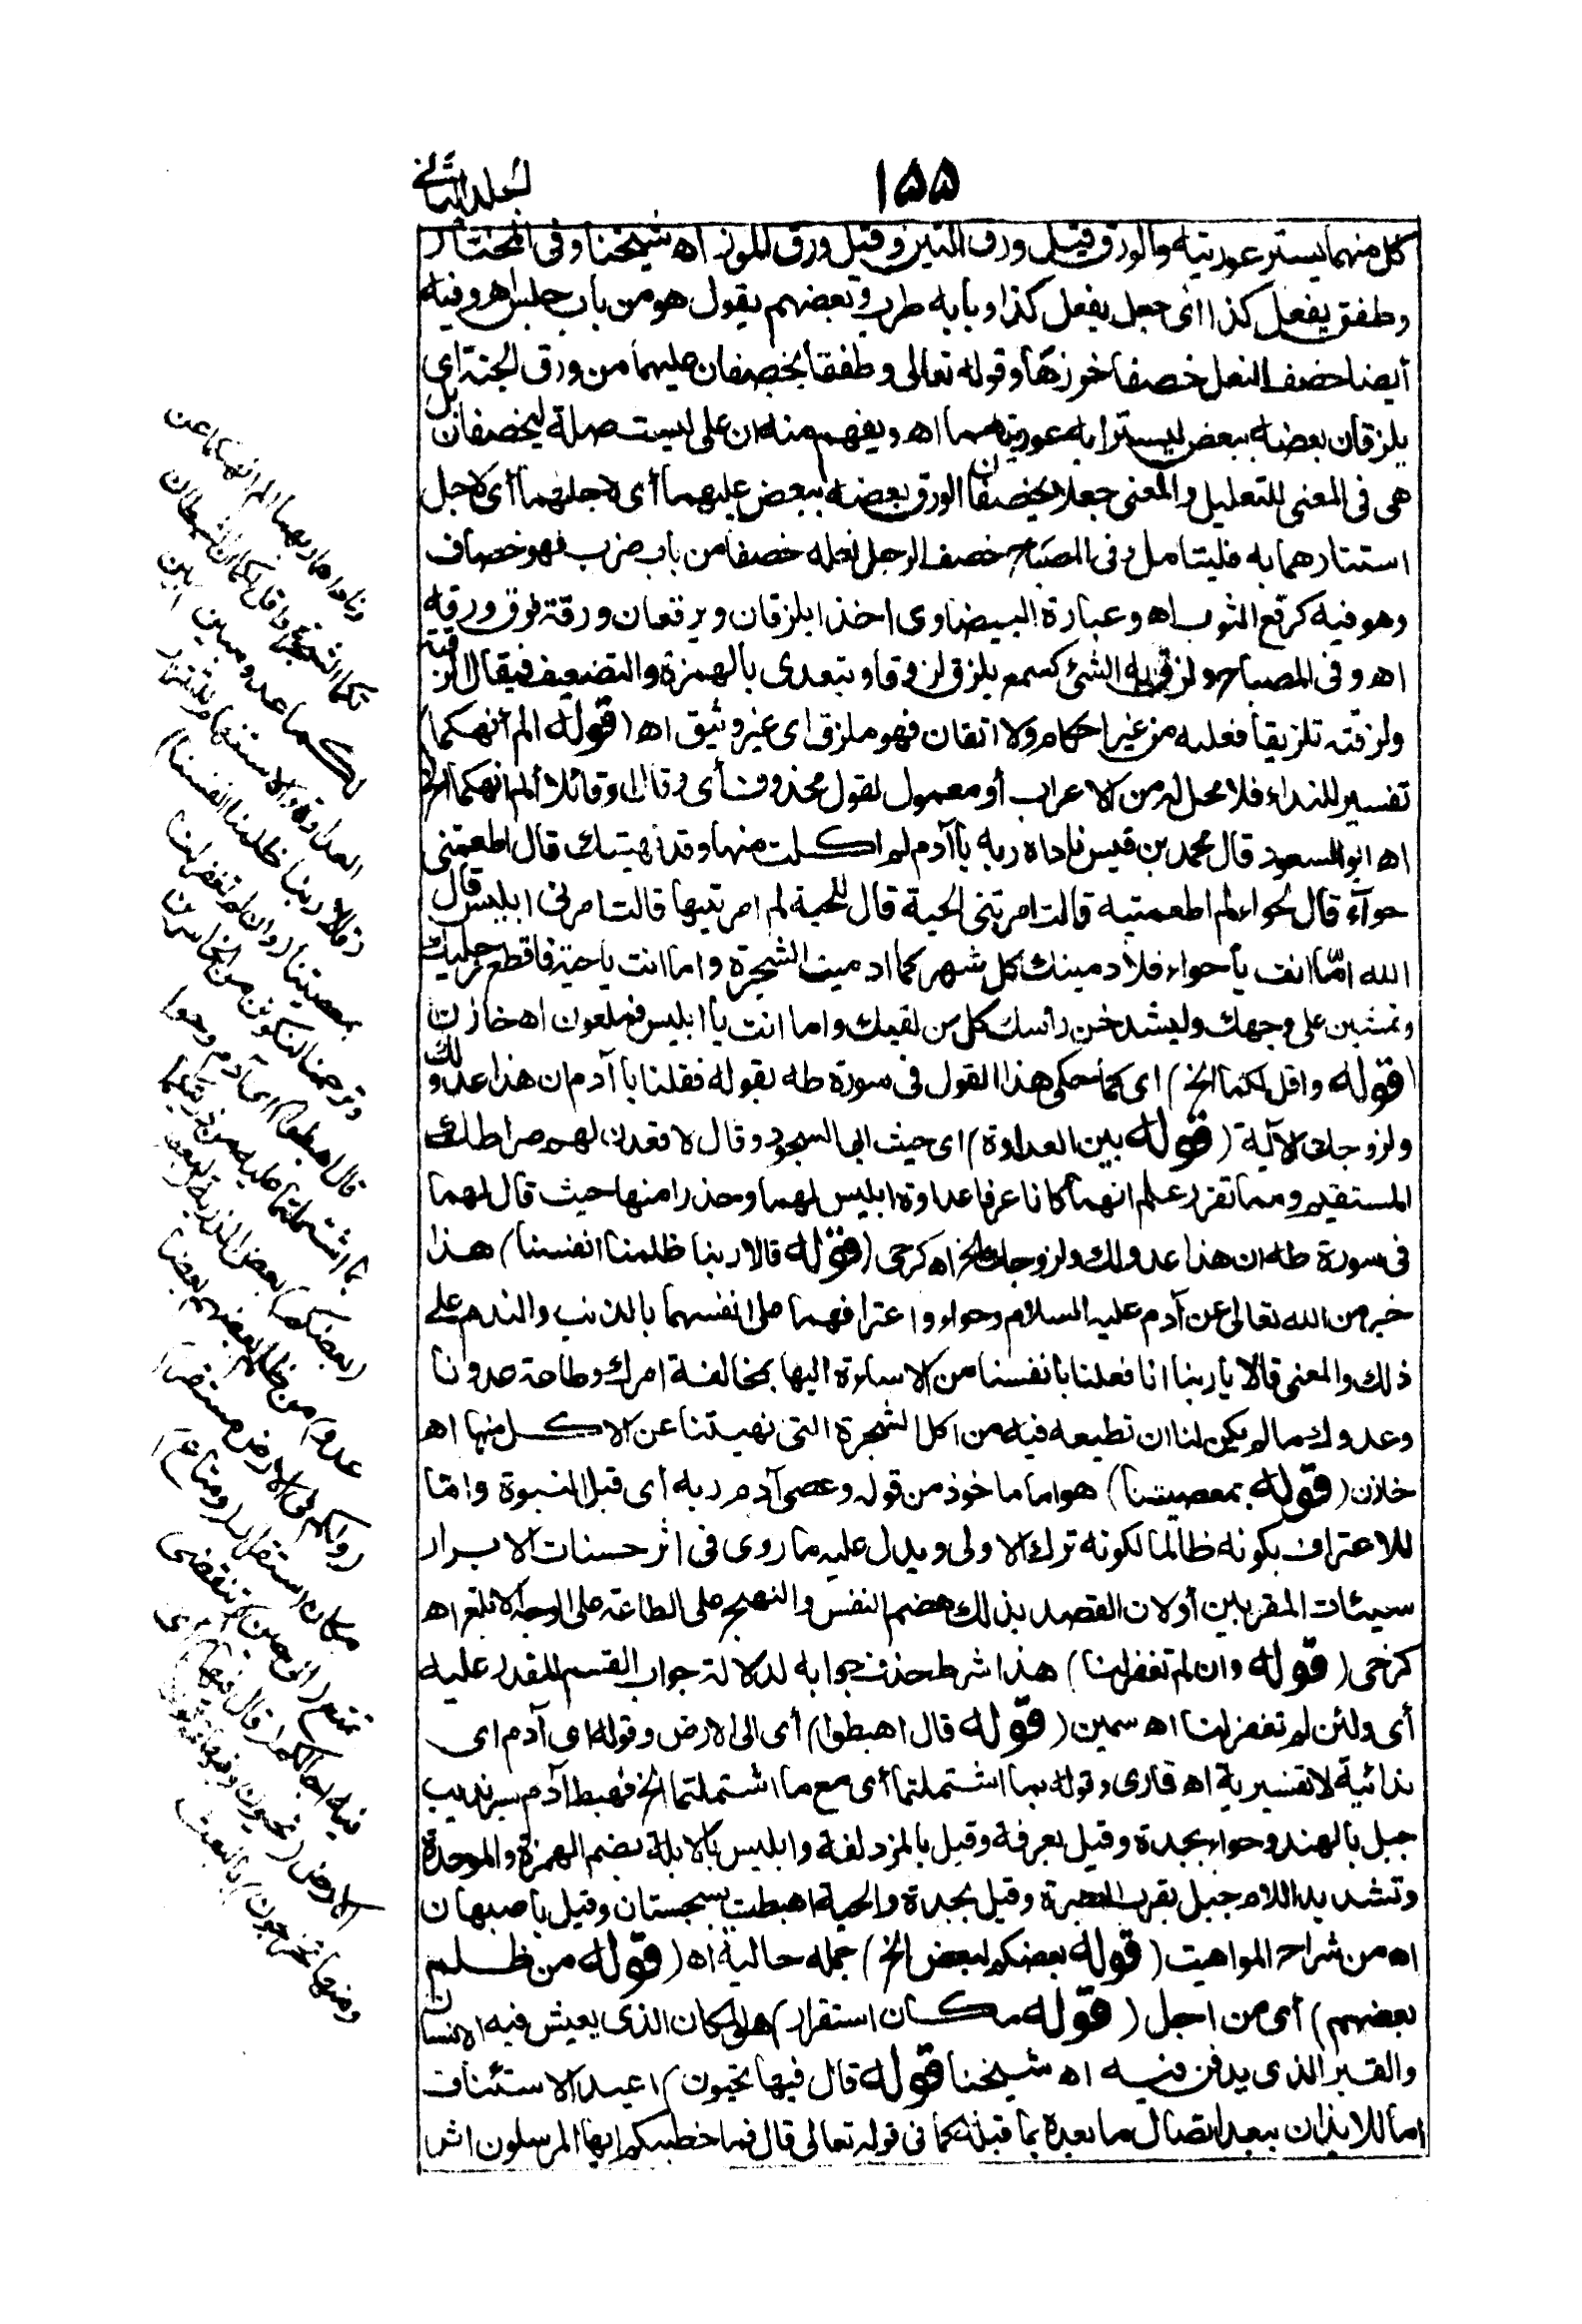 ١٥٥
الجلد الثاني
كل منهما يستر عورتيه والورق قيل ورق التين وقيل ورق الموز اه شيخنا وفى المختار
وطفق يفعل كذا اى جعل يفعل كذا وبابه طرب وبعضهم يقول هو من باب جلس اه وفيه
أيضا خصف النعل خصفا خرزها وقوله تعالى وطفقا يخصفان عليهما من ورق الجنة اى
يلزقان بعضه ببعض ليسترا به عورتهما اه ويفهم منه ان على ليست صلة ليخصفان بل
هى فى المعنى للتعليل والمعنى جعلا يخصفان الورق بعضه ببعض عليهما أى لاجلهما أى لاجل
استتارهما به فليتامل وفى المصباح خصف الرجل نعله خصفا من باب ضرب فهو خصاف
وهو فيه كرقع الثوب اه وعبارة البيضاوى اخذا يلزقان ويرقعان ورقة فوق ورقه
اه وفى المصباح ولزق به الشئ كسمع يلزق لزوقا ويتعدى بالهمزة والتضعيف فيقال الزقته
ولزقته تلزيقا فعلته من غير احكام ولا اتقان فهو ملزق اى غير وثيق اه (قوله الم أنهكما)
تفسير للنداء فلا محل له من الاعراب أو معمول لقول محذوف أى وقال او قائلا ألم انهكما الخ
اه ابو السعود قال محمد بن قيس ناداه ربه يا آدم لم اكلت منها وقد نهيتك قال اطعمتنى
حوآء قال لحواء لم اطعمتيه قالت امرتنى الحية قال للحية لم امرتيها قالت امرنى ابليس قال
الله امّا انت يا حواء فلأدمينك كل شهر كما ادميت الشجرة واما انت يا حية فاقطع رجليك
وتمشين على وجهك وليشدخن رأسك كل من لقيك واما انت يا ابليس فملعون اه خازن
(قوله واقل لكما الخ) اى كما حكى هذا القول فى سورة طه بقوله فقلنا يا آدم ان هذا عدو لك
ولزوجك الآية (قوله بين العداوة) اى حيث ابى السجود وقال لاقعدن لهم صراطك
المستقيم ومما تقرر علم انهما كانا عرفا عداوة ابليس لهما وحذرا منها حيث قال لهما
فى سورة طه ان هذا عدو لك ولزوجك الخ اه كرخى (قوله قالا ربنا ظلمنا انفسنا) هذا
خبر من الله تعالى عن آدم عليه السلام وحواء واعترافهما على انفسهما بالذنب والندم على
ذلك والمعنى قالا يا ربنا انا فعلنا بانفسنا من الاساءة اليها بمخالفة امرك وطاعة عدونا
وعدوك ما لم يكن لنا ان نطيعه فيه من اكل الشجرة التى نهيتنا عن الاكل منها اه
خازن (قوله بمعصيتنا) هو اما ماخوذ من قوله وعصى آدم ربه أى قبل النبوة وامّا
للاعتراف بكونه ظالما لكونه ترك الاولى ويدل عليه ما روى فى اثر حسنات الابرار
سيئات المقربين أو لان القصد بذلك هضم النفس والنهج على الطاعة على الوجه الابلغ اه
كرخى (قوله وان لم تغفر لنا) هذا شرط حذف جوابه لدلالة جواب القسم المقدر عليه
أى ولئن لم تغفر لنا اه سمين (قوله قال اهبطوا) أى الى الارض وقوله اى آدم اى
ندائية لا تفسيرية اه قارى وقوله بما اشتملتما أى مع ما اشتملتما الخ فهبط آدم بسرنديب
جبل بالهند وحواء بجدة وقيل بعرفة وقيل بالمزدلفة وابليس بالابلة بضم الهمزة والموحدة
وتشديد اللام جبل بقرب البصرة وقيل بجدة والحية اهبطت بسجستان وقيل باصبهان
اه من شراح المواهب (قوله بعضكم لبعض الخ) جمله حالية اه (قوله من ظلم
بعضهم) أى من اجل (قوله مكان استقرار) هو المكان الذى يعيش فيه الانسان
والقبر الذى يدفن فيه اه شيخنا قوله قال فيها تحيون) اعيد الاستئناف
اما للايذان ببعد اتصال ما بعده بما قبله كما فى قوله تعالى قال فما خطبكم ايها المرسلون اثر
وناداهما ربهما الم انهكما عن
تلكما الشجرة واقل لكما ان الشيطان
لكما عدو مبين بين
العداوة والاستفهام للتقرير
(قالا ربنا ظلمنا انفسنا)
بمعصيتنا (وان لم تغفر لنا
وترحمنا لنكونن من الخاسرين
قال اهبطوا) اى آدم وحوا
بما اشتملتما عليه من ذريتكما
(بعضكم) بعض الذرية (لبعض
عدو) من ظلم بعضهم بعضا
(ولكم فى الارض مستقر)
مكان استقرار (ومتاع)
تمتع (الى حين) تنقضى
فيه اجالكم (قال فيها) اى
الارض (تحيون وفيها تموتون
ومنها تخرجون) بالبعث